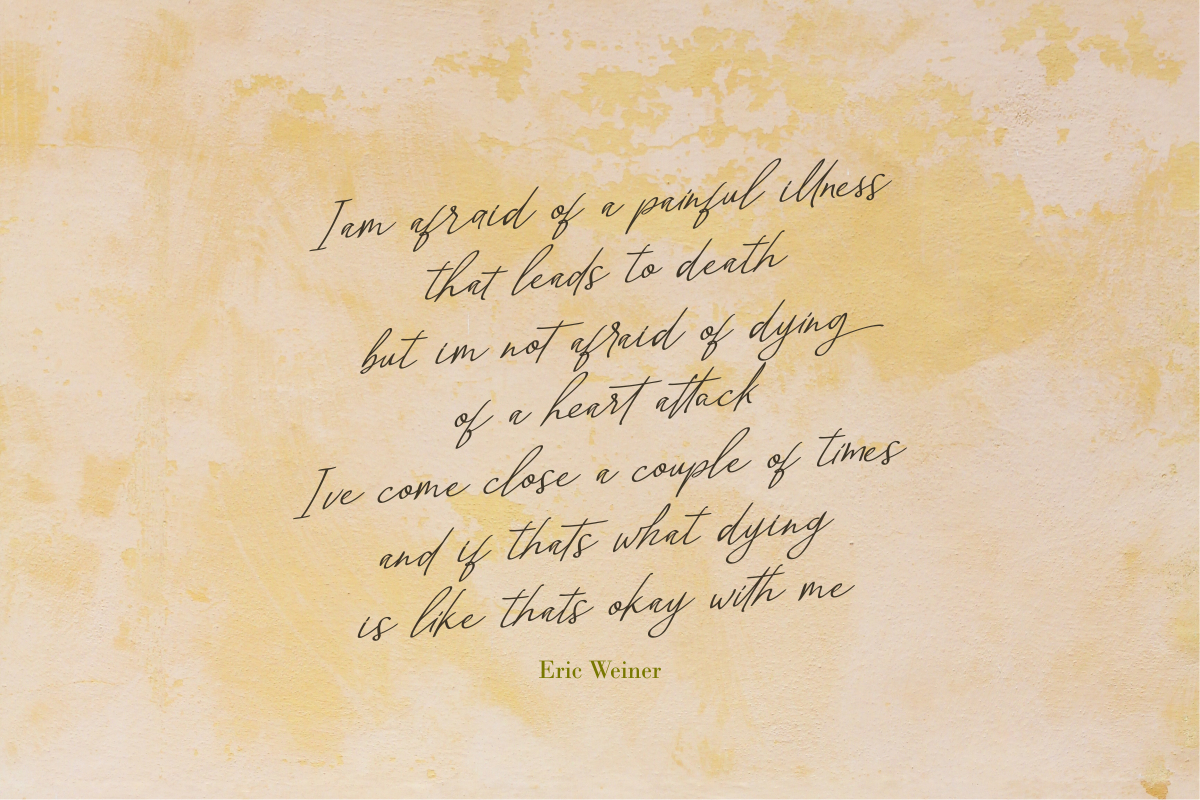 I am afraid of a painful illness
that leads to death
but im not afraid of dying
of a heart attack
Ive come close a couple of times
and if thats what dying
is like thats okay with me
Eric Weiner